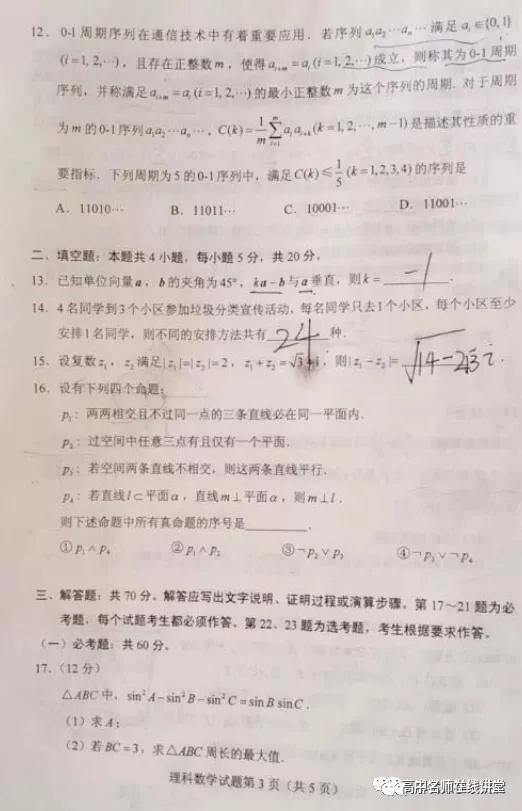 12. 0-1周期序列在通信技术中有着重要应用.若序列a₁a₂⋯aₙ⋯满足aᵢ∈{0,1}
(i=1,2,⋯),且存在正整数m,使得aᵢ₊ₘ=aᵢ(i=1,2,⋯)成立,则称其为0-1周期
序列,并称满足aᵢ₊ₘ=aᵢ(i=1,2,⋯)的最小正整数m为这个序列的周期.对于周期
为m的0-1序列a₁a₂⋯aₙ⋯,C(k)=1/m ∑ᵢ₌₁ᵐ aᵢaᵢ₊ₖ(k=1,2,⋯,m−1)是描述其性质的重
要指标.下列周期为5的0-1序列中,满足C(k)≤1/5(k=1,2,3,4)的序列是
A. 11010⋯ B. 11011⋯ C. 10001⋯ D. 11001⋯
二、填空题:本题共4小题,每小题5分,共20分.
13. 已知单位向量a,b的夹角为45°,ka−b与a垂直,则k= −1 .
14. 4名同学到3个小区参加垃圾分类宣传活动,每名同学只去1个小区,每个小区至少
安排1名同学,则不同的安排方法共有 24 种.
15. 设复数z₁,z₂满足|z₁|=|z₂|=2,z₁+z₂=√3+i,则|z₁−z₂|= √14−2√3i .
16. 设有下列四个命题:
p₁:两两相交且不过同一点的三条直线必在同一平面内.
p₂:过空间中任意三点有且仅有一个平面.
p₃:若空间两条直线不相交,则这两条直线平行.
p₄:若直线l⊂平面α,直线m⊥平面α,则m⊥l.
则下述命题中所有真命题的序号是________.
①p₁∧p₄ ②p₁∧p₂ ③¬p₂∨p₃ ④¬p₃∨¬p₄
三、解答题:共70分。解答应写出文字说明、证明过程或演算步骤。第17~21题为必
考题,每个试题考生都必须作答。第22、23题为选考题,考生根据要求作答。
(一)必考题:共60分。
17.(12分)
△ABC中,sin²A−sin²B−sin²C=sinBsinC.
(1)求A;
(2)若BC=3,求△ABC周长的最大值.
理科数学试题第3页(共5页)
高中名师在线讲堂